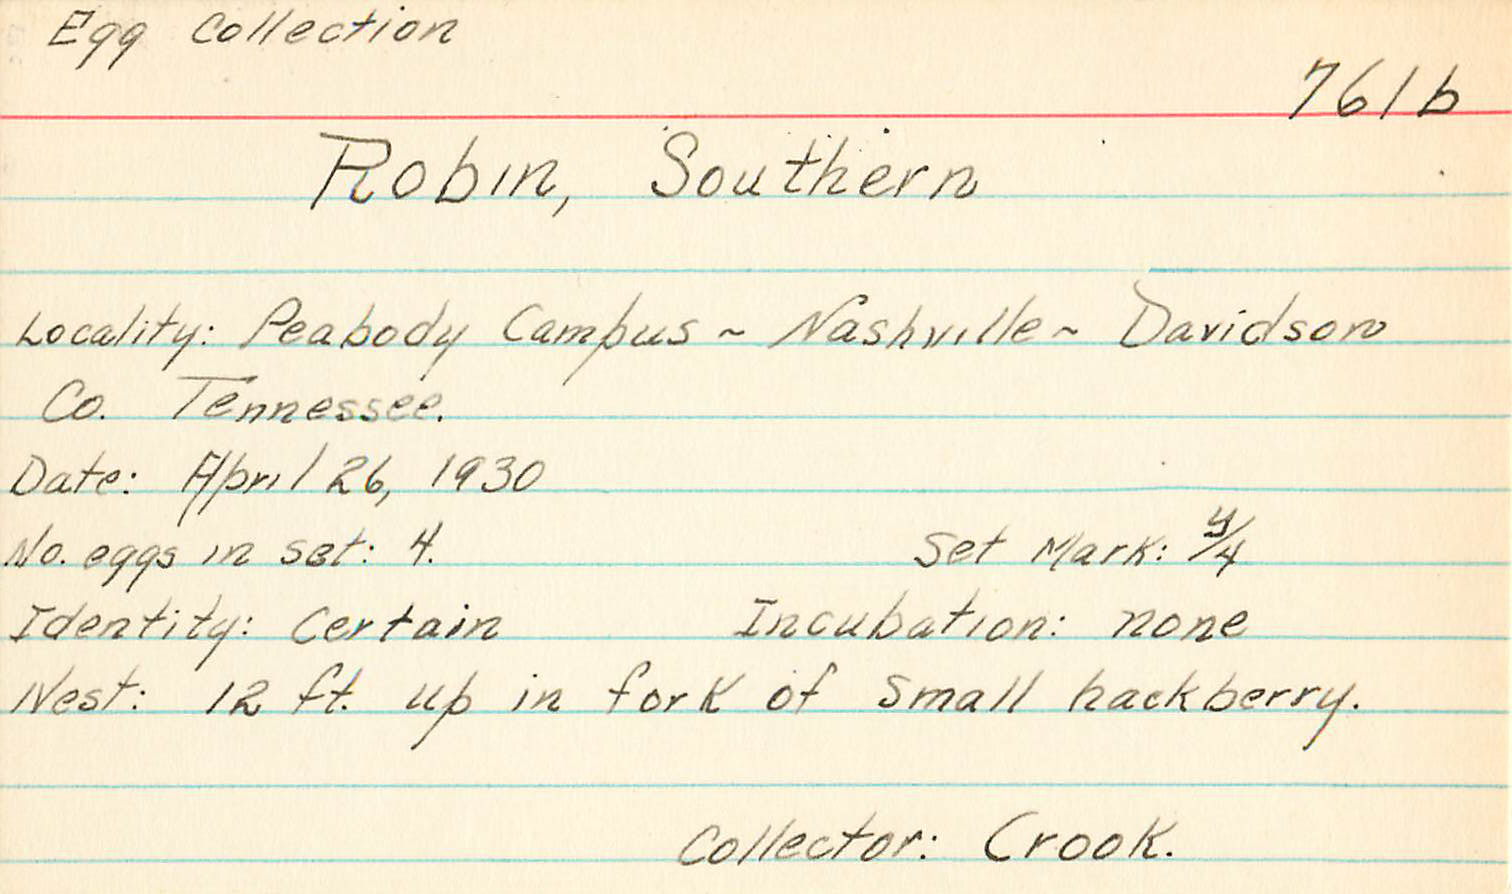 Egg Collection
761b
Robin, Southern
Locality: Peabody Campus ~ Nashville ~ Davidson
Co. Tennessee.
Date: April 26, 1930
No. eggs in set: 4. Set Mark: y/4
Identity: Certain Incubation: none
Nest: 12 ft. up in fork of small hackberry.
Collector: Crook.